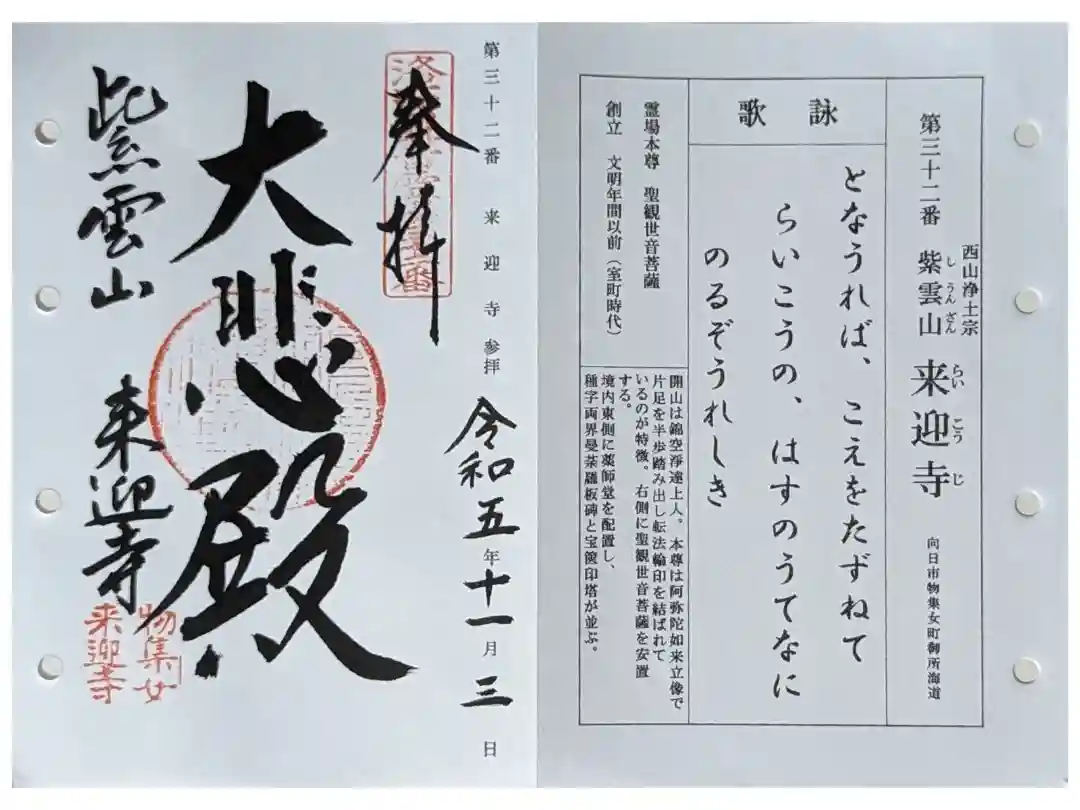 第三十二番
西山浄土宗
紫雲山 来迎寺
しうんざん らいこうじ
向日市物集女町御所海道
詠歌
となうれば、こえをたずねて
らいこうの、はすのうてなに
のるぞうれしき
霊場本尊 聖観世音菩薩
創立 文明年間以前(室町時代)
開山は錦空淨達上人。本尊は阿弥陀如来立像で
片足を半歩踏み出し転法輪印を結ばれて
いるのが特徴。右側に聖観世音菩薩を安置
する。
境内東側に薬師堂を配置し、
種字両界曼荼羅板碑と宝篋印塔が並ぶ。
第三十二番 来迎寺参拝 令和五年十一月三日
奉拝
大悲殿
紫雲山 来迎寺
物集女
来迎寺